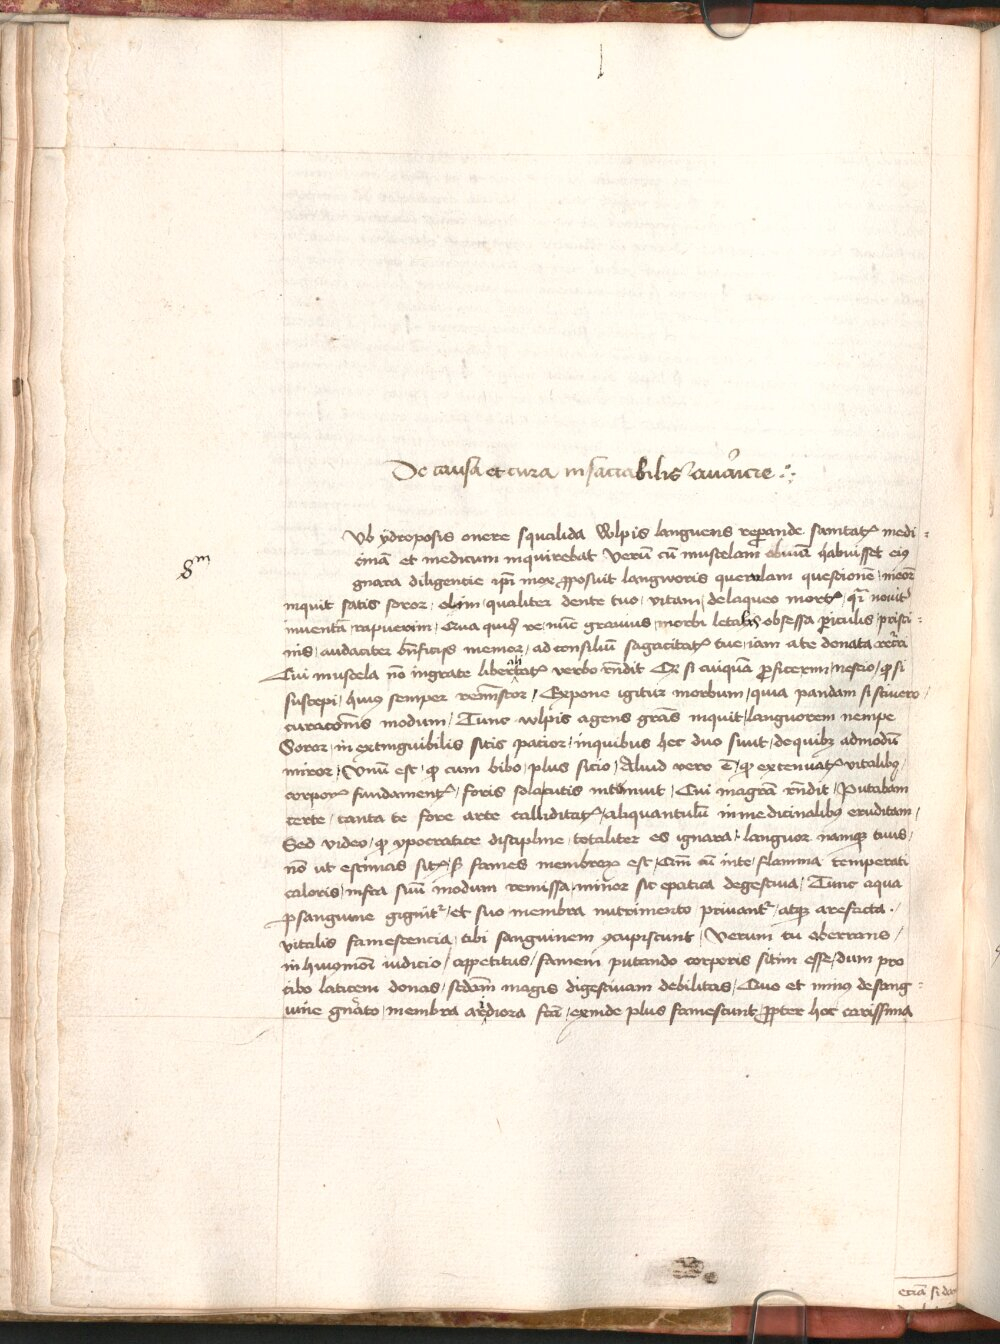 De causa et cura insaciabilis avaricie
8m
Ub ydroposis onere squalida Wlpis languens reperande sanitatꝭ medi
cinā et medicum inquirebat Verū cū mustelam obuiā habuisset eiꝰ
gnara diligentie ipī mox ꝓposuit langworis querulam questionē / meor
inquit satis soror / olim / qualiter dente tuo / vitam / de laqueo mortꝭ / qͥ nouit
inuentā rapuerim / Qua quidē re / nūc grauius / morbi letalis obsessa ꝑiculis / pristi
nis / audaciter bn̄ficijs memor / ad consiliū sagacitatꝭ tue / iam a te donata
Cui mustela nō ingrate libertatꝭ verbo rn̄dit Et si cuiquā ꝓficerim / nescio / qꝫ si
suscepi / huiꝰ semper reminiscor / Expone igitur morbum / quia pandam si sciuero
curacionis modum / Tunc wlpis agens grās inquit / languorem nempe
Soror / inextinguibilis sitis pacior / in quibus hec duo sunt / de quibꝫ admodū
miror / Vnū est / qꝫ cum bibo / plus sicio / Aliud vero ē / qꝫ extenuatꝭ vitalibꝫ
corporꝭ fundamentꝭ / foris sola cutis intumuit / Cui magrā rn̄dit / Putabam
certe / tanta te fore arte calliditatꝭ / aliquantulū in medicinalibꝫ eruditam /
Sed video / qꝫ ypocratice discipline / totaliter es ignara / languor namqꝫ tuus /
nō ut estimas sitꝭ / sꝫ fames membroꝝ est / Cum em̄ in te / flamma temperati
caloris / infra suū modum remissa / minor sit epatica degestiua / Tunc aqua
ꝑ sanguine gignitꝭ / et suo membra nutrimento priuantꝭ / atqꝫ arefacta /
vitalis famescencia / cibi sanguinem ꝯcupiscunt / Verum tu oberrans /
in huiꝰmōi iudicio / appetitus / famem putando corporis sitim esse / dum pro
cibo laticem donas / secdam magis digestiuam debilitas / Quo et minꝰ de sang
uine gn̄ato / membra aridiora fcā / exinde plus famescunt / ꝓpter hoc carissima
eciā si